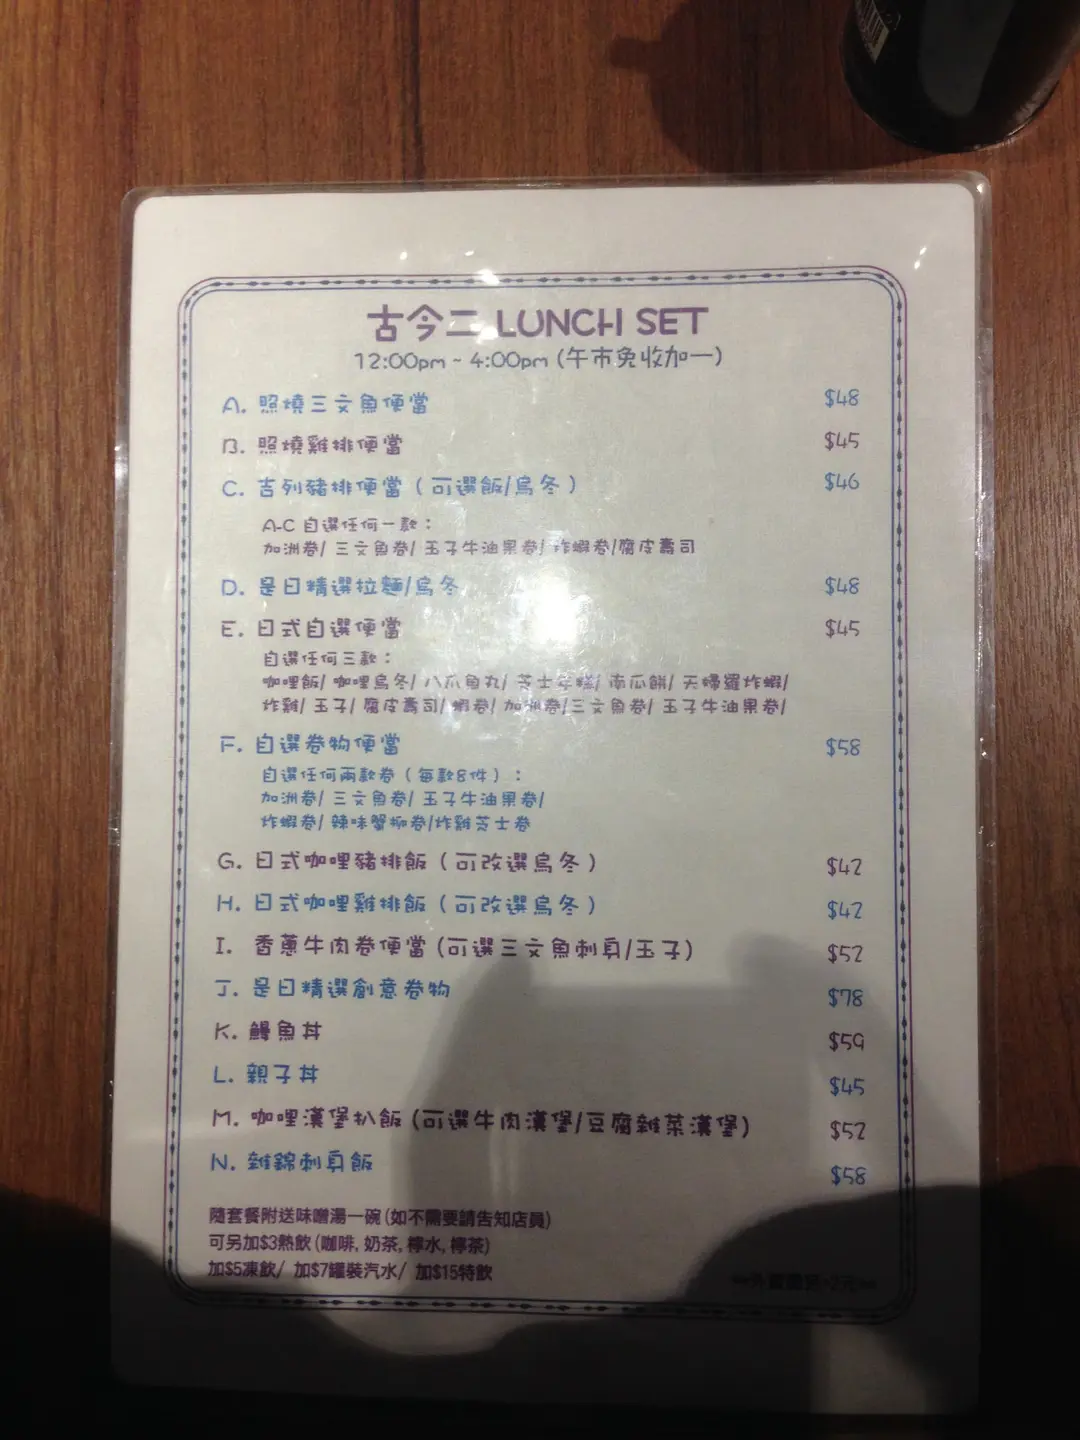 古今二 LUNCH SET
12:00pm ~ 4:00pm (午市免收加一)
A. 照燒三文魚便當 $48
B. 照燒雞排便當 $45
C. 吉列豬排便當 ( 可選飯/烏冬 ) $46
A-C 自選任何一款 :
加洲卷/ 三文魚卷/ 玉子牛油果卷/ 炸蝦卷/腐皮壽司
D. 是日精選拉麵/烏冬 $48
E. 日式自選便當 $45
自選任何三款 :
咖哩飯/ 咖哩烏冬/ 八爪魚丸/ 芝士年糕/ 南瓜餅/ 天婦羅炸蝦/
炸雞/ 玉子/ 腐皮壽司/ 蝦卷/ 加洲卷/三文魚卷/ 玉子牛油果卷/
F. 自選卷物便當 $58
自選任何兩款卷 ( 每款8件 ) :
加洲卷/ 三文魚卷/ 玉子牛油果卷/
炸蝦卷/ 辣味蟹柳卷/炸雞芝士卷
G. 日式咖哩豬排飯 ( 可改選烏冬 ) $42
H. 日式咖哩雞排飯 ( 可改選烏冬 ) $42
I. 香蔥牛肉卷便當 (可選三文魚刺身/玉子) $52
J. 是日精選創意卷物 $78
K. 鰻魚丼 $59
L. 親子丼 $45
M. 咖哩漢堡扒飯 (可選牛肉漢堡/豆腐雜菜漢堡) $52
N. 雜錦刺身飯 $58
隨套餐附送味噌湯一碗 (如不需要請告知店員)
可另加$3熱飲 (咖啡, 奶茶, 檸水, 檸茶)
加$5凍飲/ 加$7罐裝汽水/ 加$15特飲